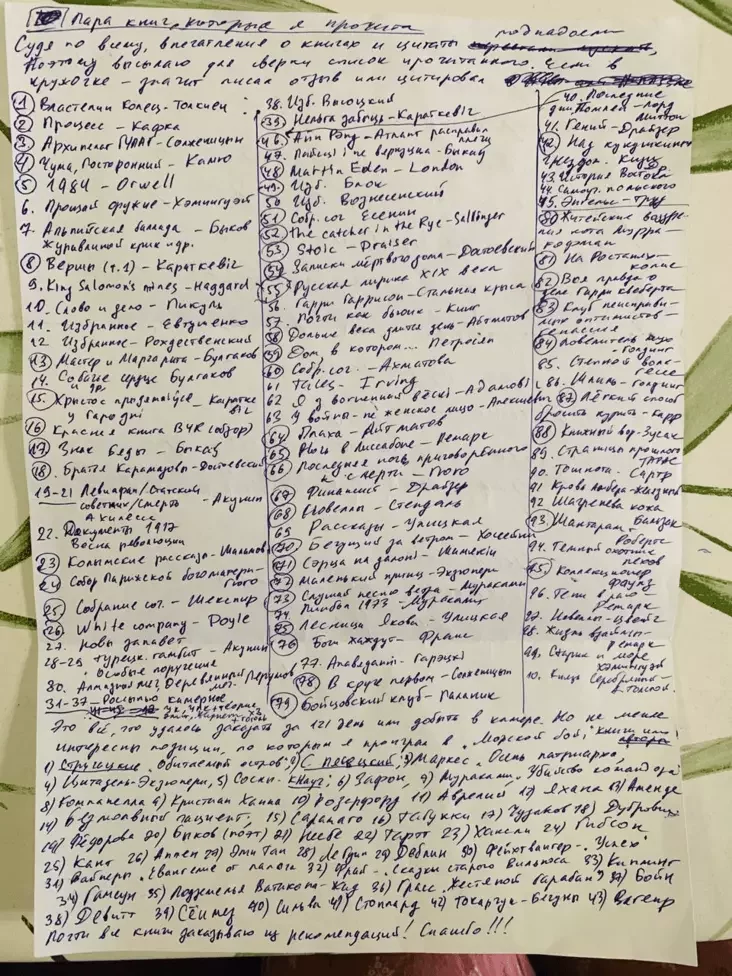 Пара книг, которые я прочита
Судя по всему, впечатление о книгах и цитаты поднадоели
Поэтому высылаю для сверки список прочитанного. Если в
кружочке – значит писал отзыв или цитировал
1 Властелин Колец – Толкиен
2 Процесс – Кафка
3 Архипелаг ГУЛАГ – Солженицын
4 Чума, Посторонний – Камю
5 1984 – Orwell
6. Прощай оружие – Хэмингуэй
7. Альпийская баллада – Быков
Журавлиный крик и др.
8 Вершы (т.1) – Караткевіч
9. King Salomon's mines – Haggard
10. Слово и дело – Пикуль
11. Избранное – Евтушенко
12 Избранное – Рождественский
13 Мастер и Маргарита – Булгаков
14. Собачье сердце Булгаков
и др.
15. Хрыстос прызямліўся – Караткевіч
у Гародні
16 Красная книга ВЧК (обзор)
17 Знак беды – Быкаў
18. Братья Карамазовы – Достоевский
19-21 Левиафан/Статский
советник/Смерть – Акунин
Ахиллеса
22. Документы 1917
Весна революции
23 Колымские рассказы – Шаламов
24 Собор Парижской богоматери –
Гюго
25 Собрание соч. – Шекспир
26 White company – Doyle
27. Новы запавет
28-29 Турецк. гамбит – Акунин
Особые поручения
30. Алмазный меч, Деревянный меч – Перумов
31-37 – Россыпью камерное
38. Изб. Высоцкий
39 Нельга забыць – Караткевіч
46. Айн Рэнд – Атлант расправил
плечи
47. Пайсці і не вярнуцца – Быкаў
48 Martin Eden – London
49. Изб. Блок
50 Изб. Вознесенский
51 Собр. соч Есенин
52 The catcher in the Rye – Sallinger
53 Stoic – Draiser
54 Записки мёртвого дома – Достоевский
55 Русская лирика XIX века
56. Гарри Гаррисон – Стальная крыса
57. Почти как бьюик – Кинг
58 Дольше века длится день – Айтматов
59 Дом, в котором... Петросян
60 Собр. соч. – Ахматова
61 Tales – Irving
62 Я з вогненнай вёскі – Адамовіч
63 У войны – не женское лицо – Алексиевич
64 Плаха – Айтматов
65 Ночь в Лиссабоне – Ремарк
66 Последняя ночь приговорённого
к смерти – Гюго
67 Финансист – Драйзер
68 Новеллы – Стендаль
69 Рассказы – Улицкая
70 Бегущий за ветром – Хоссейни
71 Сэрца на далоні – Шамякін
72 Маленький принц – Экзюпери
73 Слушай песню ветра – Мураками
74 Пинбол 1973 – Мураками
75 Лестница Якова – Улицкая
76 Боги жаждут – Франс
77. Апавяданні – Гарэцкі
78 В круге первом – Солженицын
79 Бойцовский клуб – Паланик
40. Последние
дни Помпеи – лорд
Литтон
41. Гений – Драйзер
42 Над кукушкиным
гнездом. Кизи
43. История Востока
44. Самоуч. польского
80 Житейские воззре-
ния кота Мурра –
Гофман
81 На Ростанях –
Колас
82 Вся правда о
деле Гарри Квеберта
83 Клуб неисправи-
мых оптимистов –
Генассия
84 Повелитель мух
– Голдинг
85. Степной волк –
Гессе
86. Шпиль – Голдинг
87 Лёгкий способ
бросить курить – Карр
88 Книжный вор – Зусак
90. Тошнота. Сартр
92 Шагреневая кожа
Бальзак
93. Шантарам –
Робертс
94. Темный охотник
Пехов
95. Коллекционер
Фаулз
96. Тени в раю –
Ремарк
97. Новеллы – Цвейг
98. Жизнь взаймы –
Ремарк
99. Старик и море
Хэмингуэй
Князь Серебряный –
Толстой
Это всё, что удалось заказать за 121 день или добыть в камере. Но не менее
интересны позиции, по которым я проиграл в "Морской бой": книги или
1) Стругацкие "Обитаемый остров", 2) С. Песецкий, 3) Маркес "Осень патриарха",
4) Цитадель – Экзюпери, 5) Сосны – Кнаус 6) Зафон, 7) Мураками "Убийство командора"
8) Компанелла 9) Кристин Ханна 10) Розерфорд 11) Аврелий 12) Яхина 13) Аменде
14) Безмолвный пациент, 15) Сарамаго 16) Табукки 17) Чудаков 18) Дубровин
19) Фёдорова 20) Быков (поэт) 21) Несбё 22) Тартт 23) Ханели 24) Гибсон
25) Кант 26) Аппен 27) Эми Тан 28) Ле Гуин 29) Дёблин 30) Фейхтвангер – "Успех"
31) Вагнеры "Евангелие от палача" 32) Фрай – "Сказки старого Вильнюса" 33) Киплинг
34) Гамсун 35) Подземелья Ватикана – Жид 36) Грасс "Жестяной барабан" 37) Бойн
38) Девитт 39) Сёимез 40) Сильва 41) Стоппард 42) Токарчук – Бегуны 43) Вагнер
Почти все книги заказываю из рекомендаций! Спасибо!!!